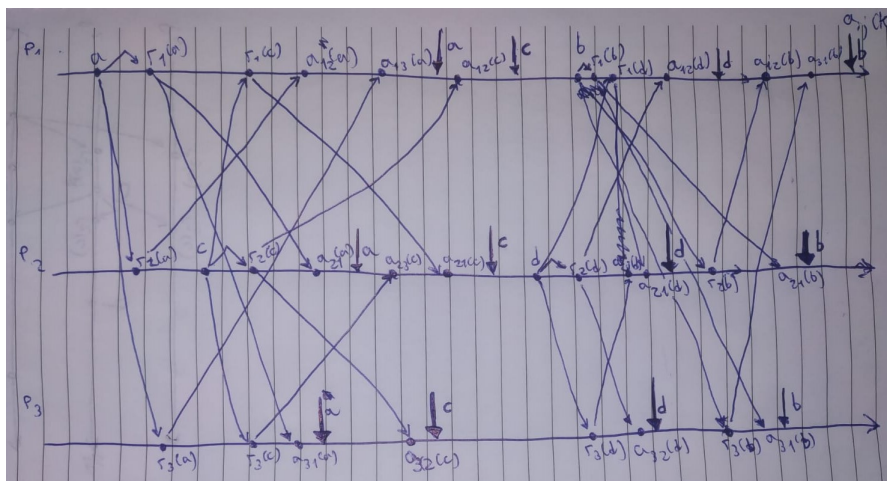 P1 a r1(a) r1(c) a12(a) a13(a) a a12(c) c b r1(b) r1(d) a12(d) d a12(b) a31(b) b
P2 r2(a) c r2(c) a21(a) a a23(c) a21(c) c d r2(d) a21(d) d r2(b) a21(b) b
P3 r3(a) r3(c) a31(a) a a32(c) c r3(d) a32(d) d r3(b) a31(b) b